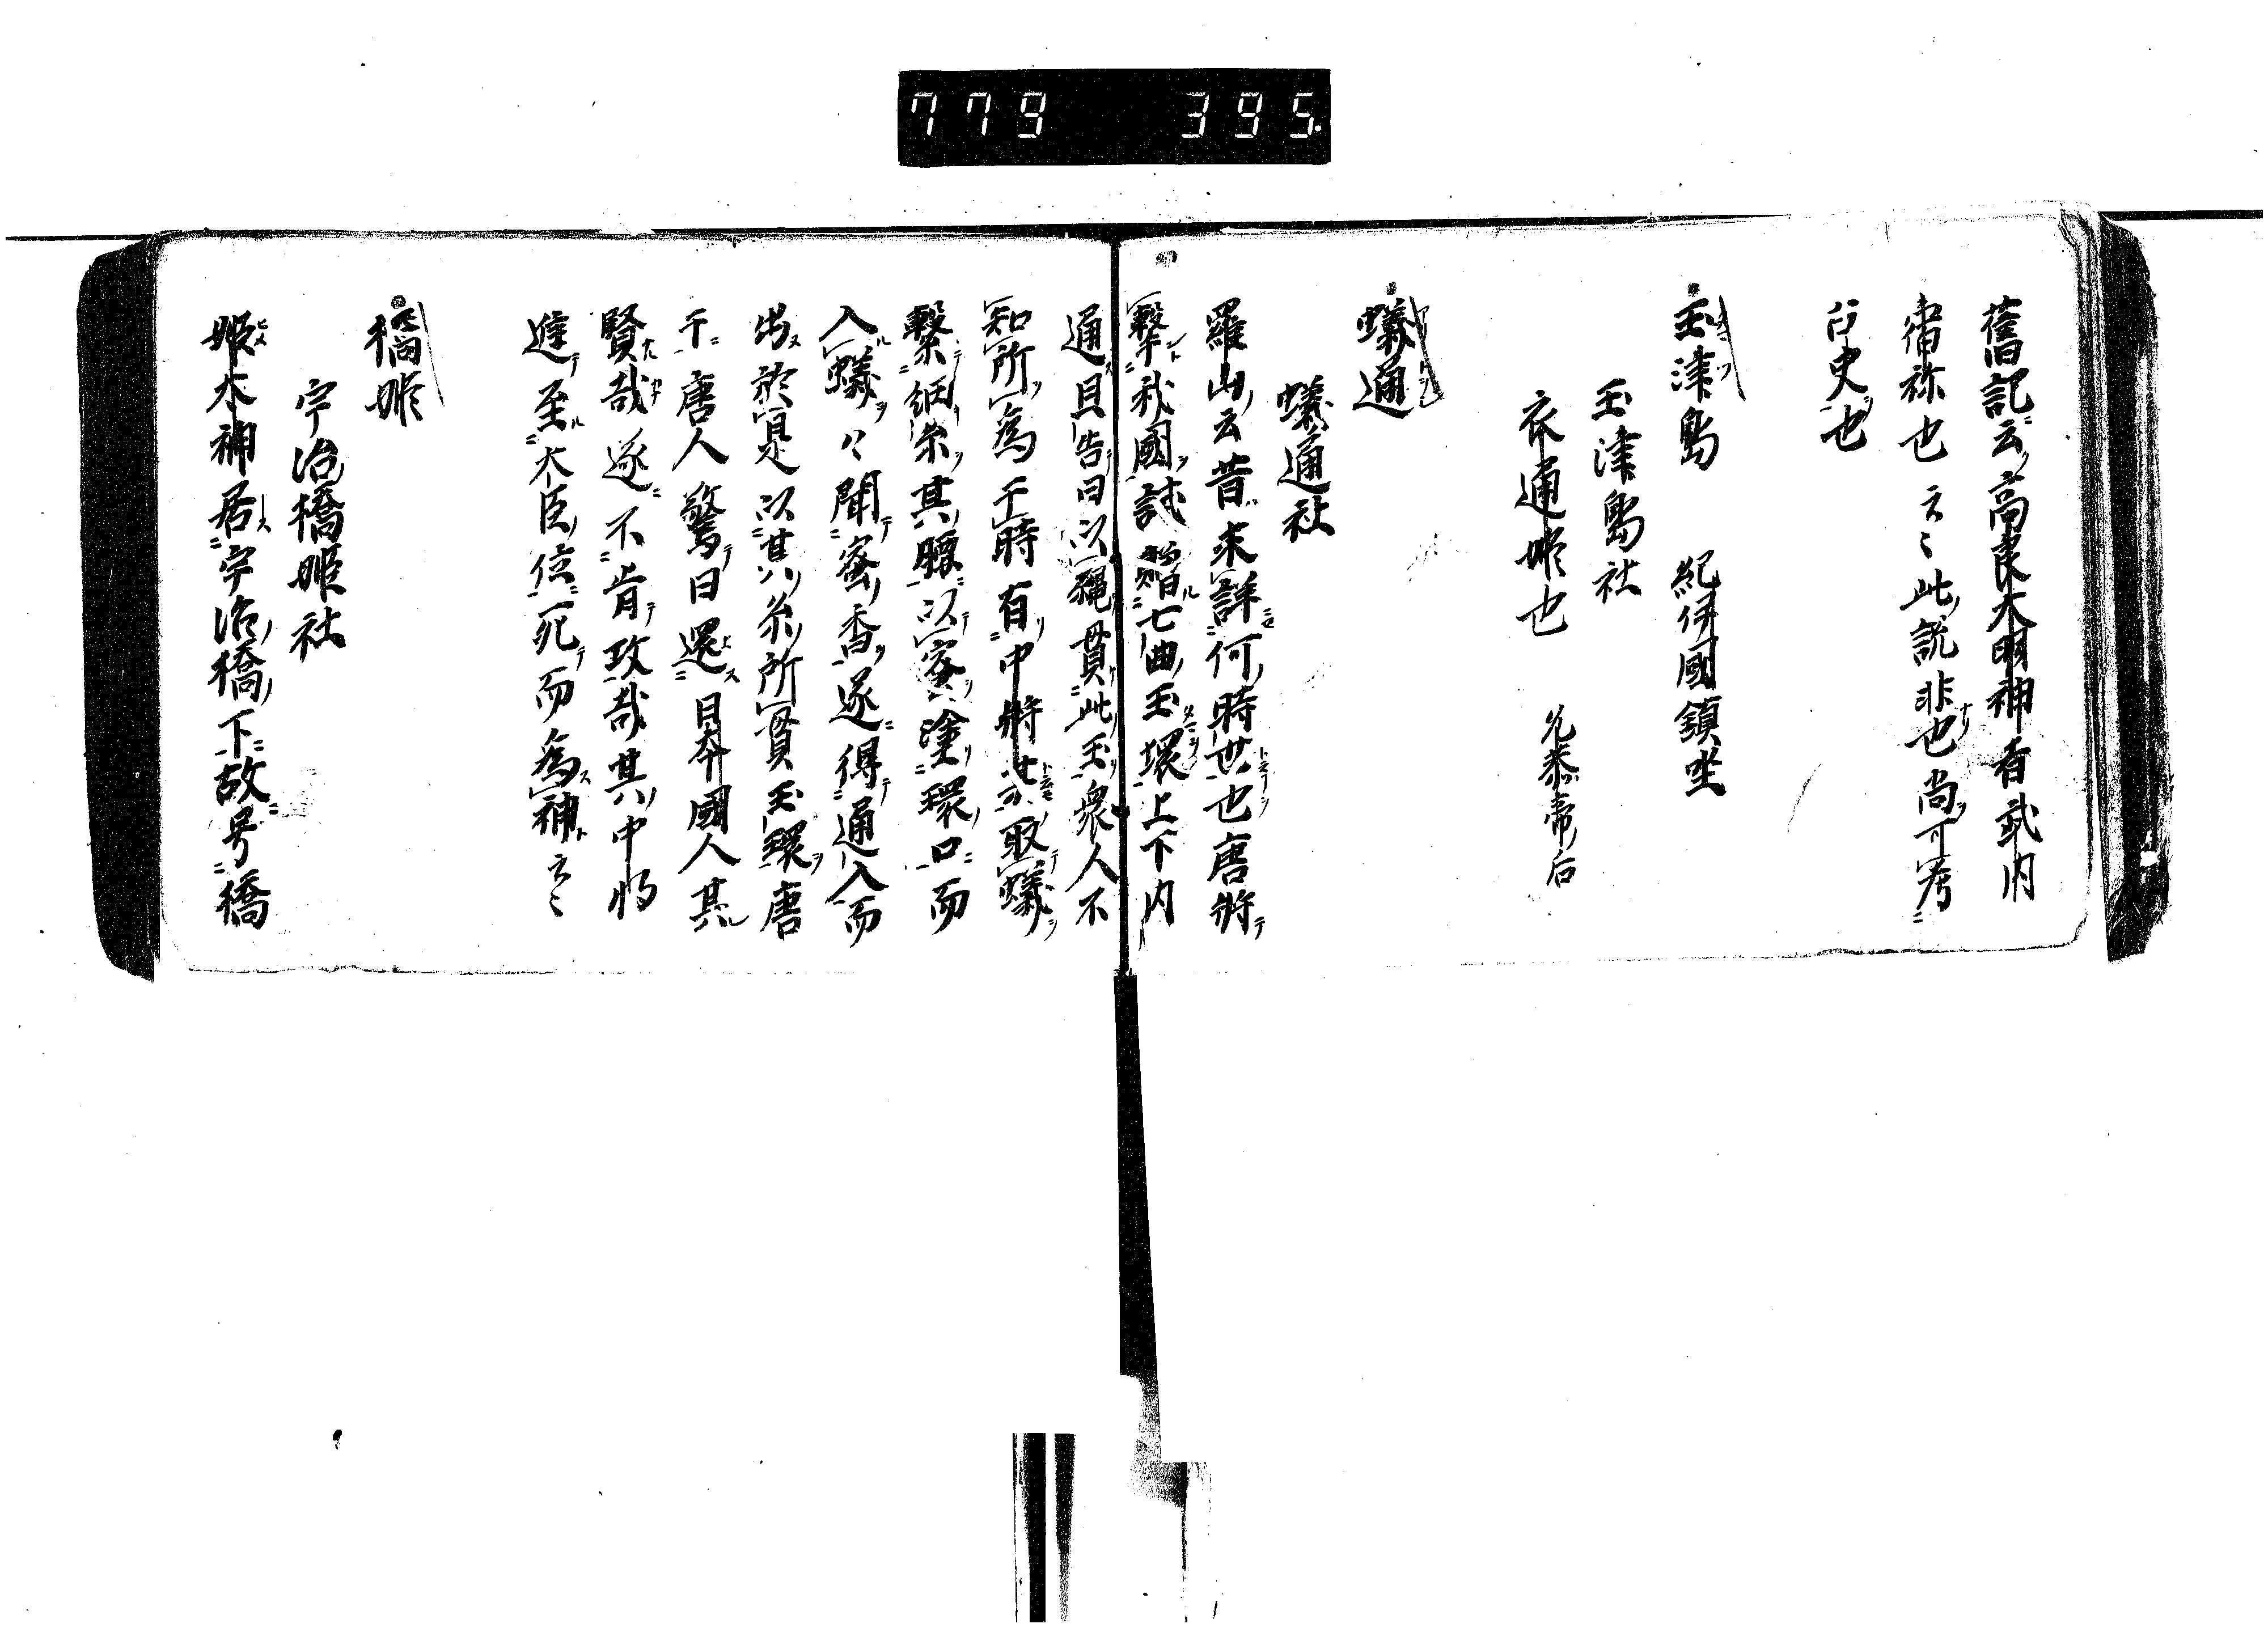 779 395.
舊記云高良大明神者武内
宿祢也云々此説非也尚可考
旧史也
玉津島 紀伊國鎮坐
玉津島社
衣通姫也 允恭帝后
蟻通
蟻通社
羅山云昔未詳何時世也唐将
撃我國試智七曲玉環上下内
通且告曰以縄貫此玉衆人不
知所為于時有中将某取蟻
繫細糸其腰以蜜塗環口而
入蟻々聞蜜香遂得通入而
出於是以其糸所貫玉環唐
于唐人驚曰還日本國人其
賢哉遂不肯攻哉其中将
進至大臣位死而為神云々
橋姫
宇治橋姫社
姫大神居宇治橋下故号橋